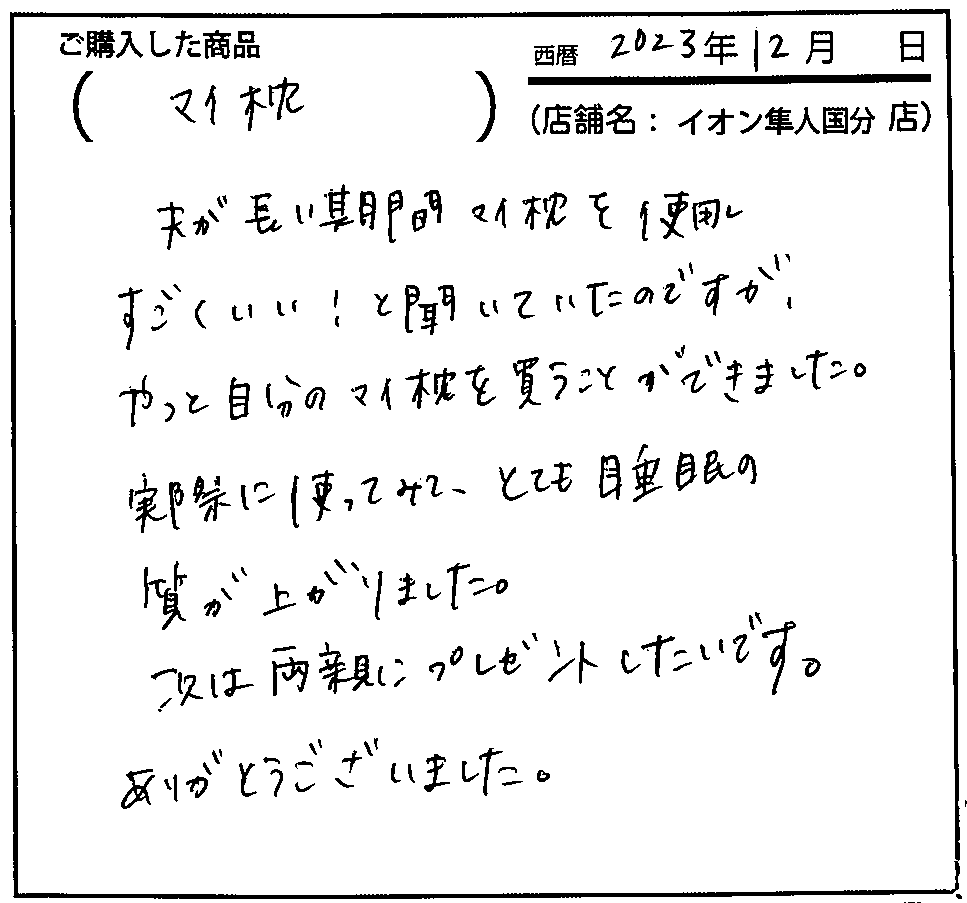 ご購入した商品
西暦 2023年12月 日
( マイ枕 )
(店舗名： イオン隼人国分 店)
夫が長い期間 マイ枕を使用し
すごくいい！と聞いていたのですが、
やっと自分のマイ枕を買うことができました。
実際に使ってみて、とても睡眠の
質が上がりました。
次は両親にプレゼントしたいです。
ありがとうございました。